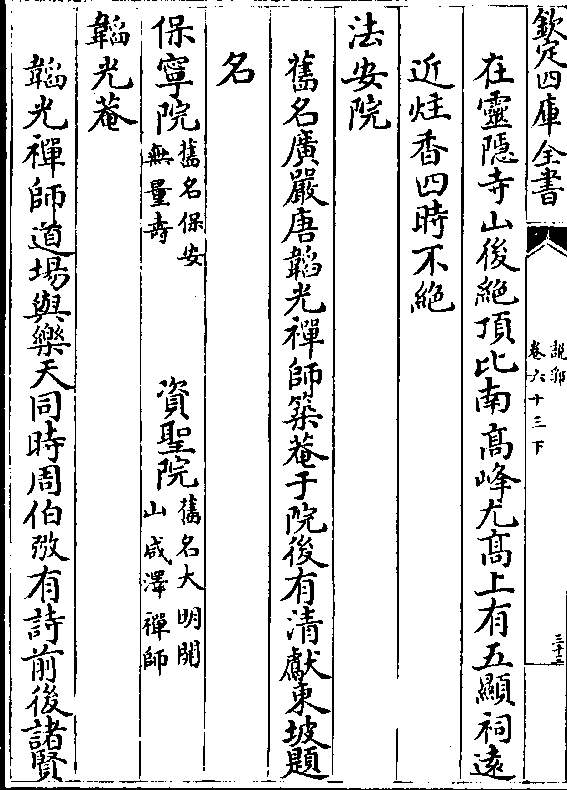 欽定四庫全書
說郛
卷六十三下
三十二
在靈隱寺山後絶頂比南高峰尤高上有五顯祠遠
近炷香四時不絶
法安院
舊名廣嚴唐韜光禪師築菴于院後有清獻東坡題
名
保寧院舊名保安無量壽 資聖院舊名大明開山咸澤禪師
韜光菴
韜光禪師道場與樂天同時周伯弜有詩前後諸賢